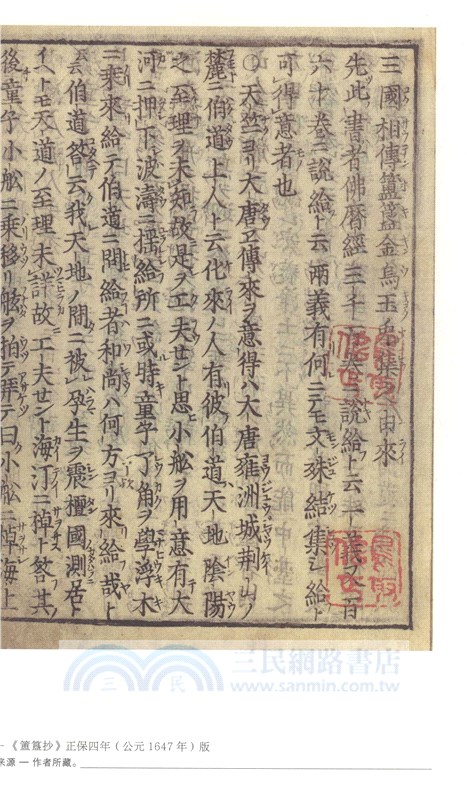 三國相傳簠簋金烏玉兎集之由來
先此書者佛曆經三千卷說給ト云義ニ百
六十卷ニ說給ト云兩義有何ニテモ文殊結集シ給ト
可得意者也
○天竺ヨリ大唐ヱ傳來ヲ意得ハ大唐雍洲城荆山ノ
麓ニ伯道上人ト云化來ノ人有彼伯道天地陰陽
之至理ヲ未知故是ヲ工夫セント思小舩ヲ用意有大
河ニ押下波濤ニ揺給所ニ或時童子丫角ヲ學浮木
ニ乘來給テ伯道ニ問給者和尚ハ何方ヨリ來給哉ト
云伯道答云我天地ノ間ニ被孕生ヲ震檀國測居ト
イヘトモ天道ノ至理未詳故工夫セント海汀ニ棹ト答其
後童子小舩ニ乘移リ舷ヲ拍テ曰小舩ニ棹海上
三民網路書店
www.sanmin.com.tw
《簠簋抄》正保四年（公元1647年）版
來源 — 作者所藏。